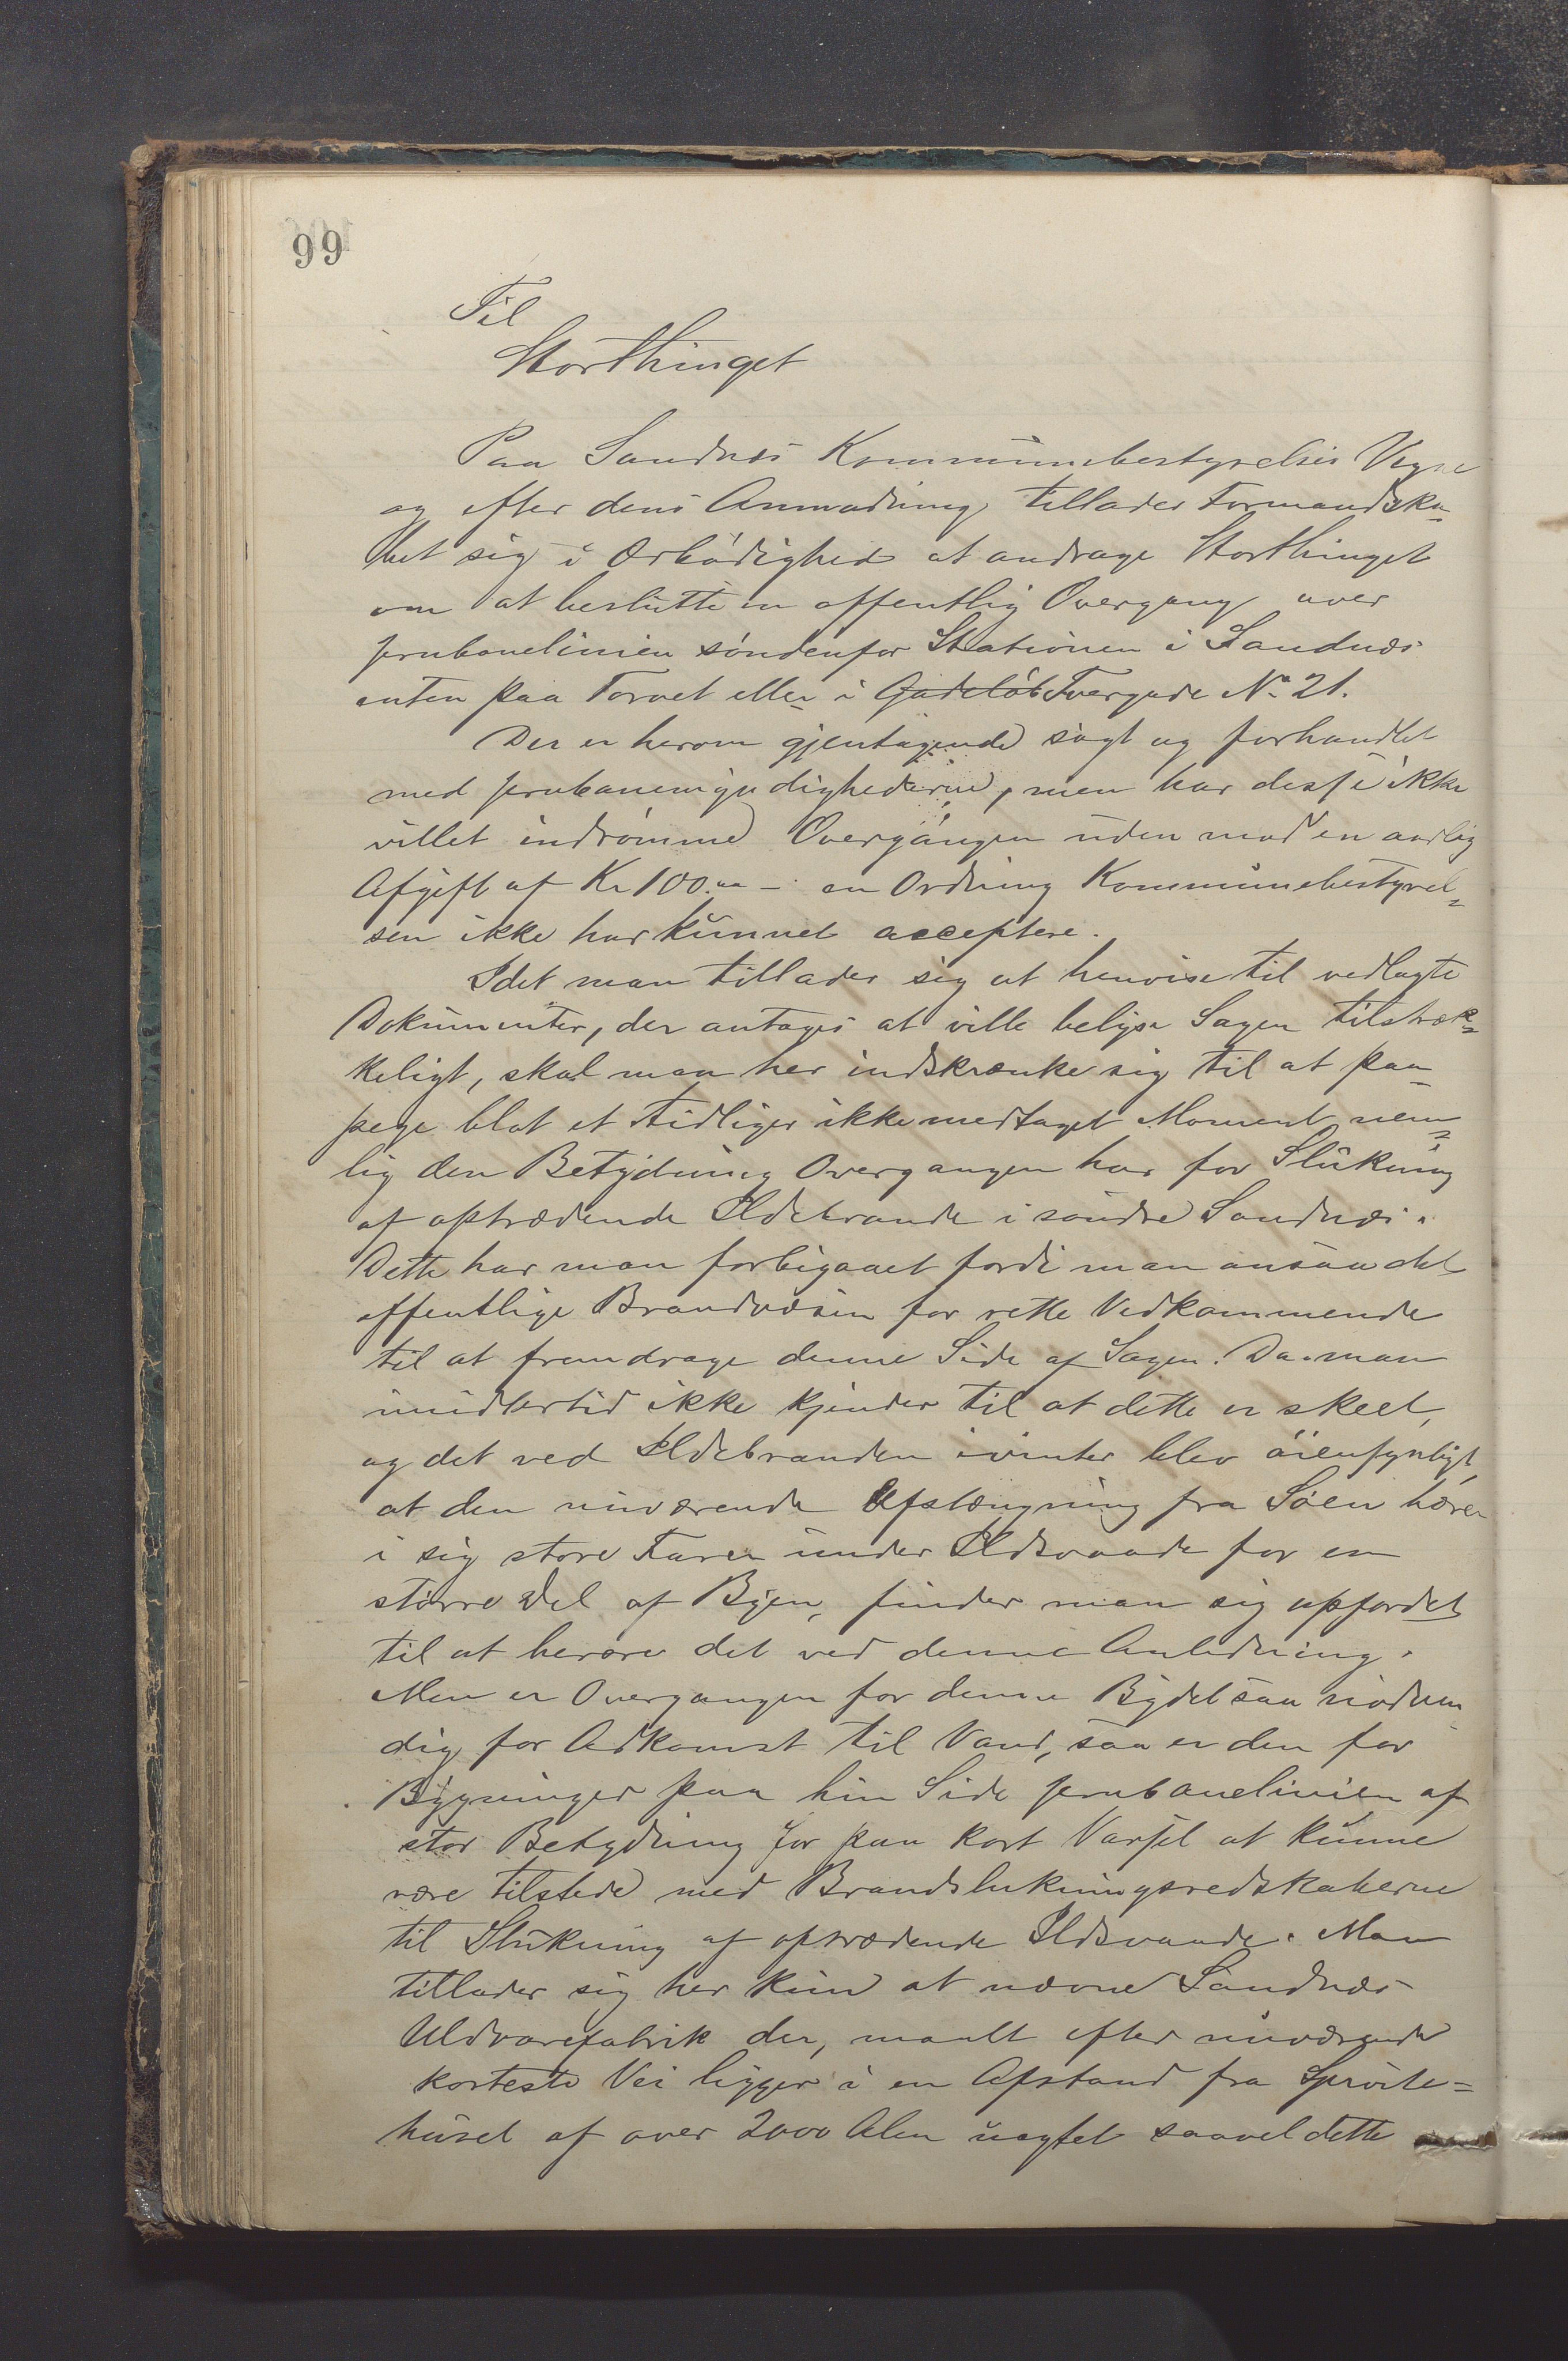 99
Til
Storthinget
Paa Sandnæs Kommunebestyrelses Vegne
og efter dens Anmodning tillader Formandska-
bet sig i Ærbødighed at andrage Storthinget
om at beslutte en offentlig Overgang over
Jernbanelinien søndenfor Stationen i Sandnæs
enten paa Torvet eller i Gadeløb Tvergade No 21.
Der er herom gjentagende søgt og forhandlet
med Jernbanemyndighederne, men har disse ikke
villet indrømme Overgangen uden mod en aarlig
Afgift af Kr 100.00 - en Ordning Kommunebestyrel-
sen ikke har kunnet acceptere.
Idet man tillader sig at henvise til vedlagte
Dokumenter, der antages at ville belyse Sagen tilstræk-
keligt, skal man her indskrænke sig til at paa-
pege blot et tidligere ikke medtaget Moment nem-
lig den Betydning Overgangen har for Slukning
af optrædende Ildebrande i søndre Sandnæs.
Dette har man forbigaaet fordi man ansaa det
offentlige Brandvæsen for rette Vedkommende
til at fremdrage denne Side af Sagen. Da man
imidlertid ikke kjender til at dette er skeet,
og det ved Ildebranden ivinter blev øiensynligt,
at den nuværende Afstængning fra Søen bærer
i sig store Farer under Ildsvaade for en
større Del af Byen, finder man sig opfordet
til at berøre det ved denne Anledning.
Men er Overgangen for denne Bydel saa nødven
dig for Adkomst til Vand, saa er den for
Bygninger paa hin Side Jernbanelinien af
stor Betydning for paa kort Varsel at kunne
være tilstede med Brandslukningsredskaberne
til Slukning af optrædende Ildsvaade. Man
tillader sig her kun at nævne Sandnæs
Uldvarefabrik der, maalt efter nuværende
korteste Vei ligger i en Afstand fra Sprøite-
huset af over 2000 Alen uagtet saavel dette